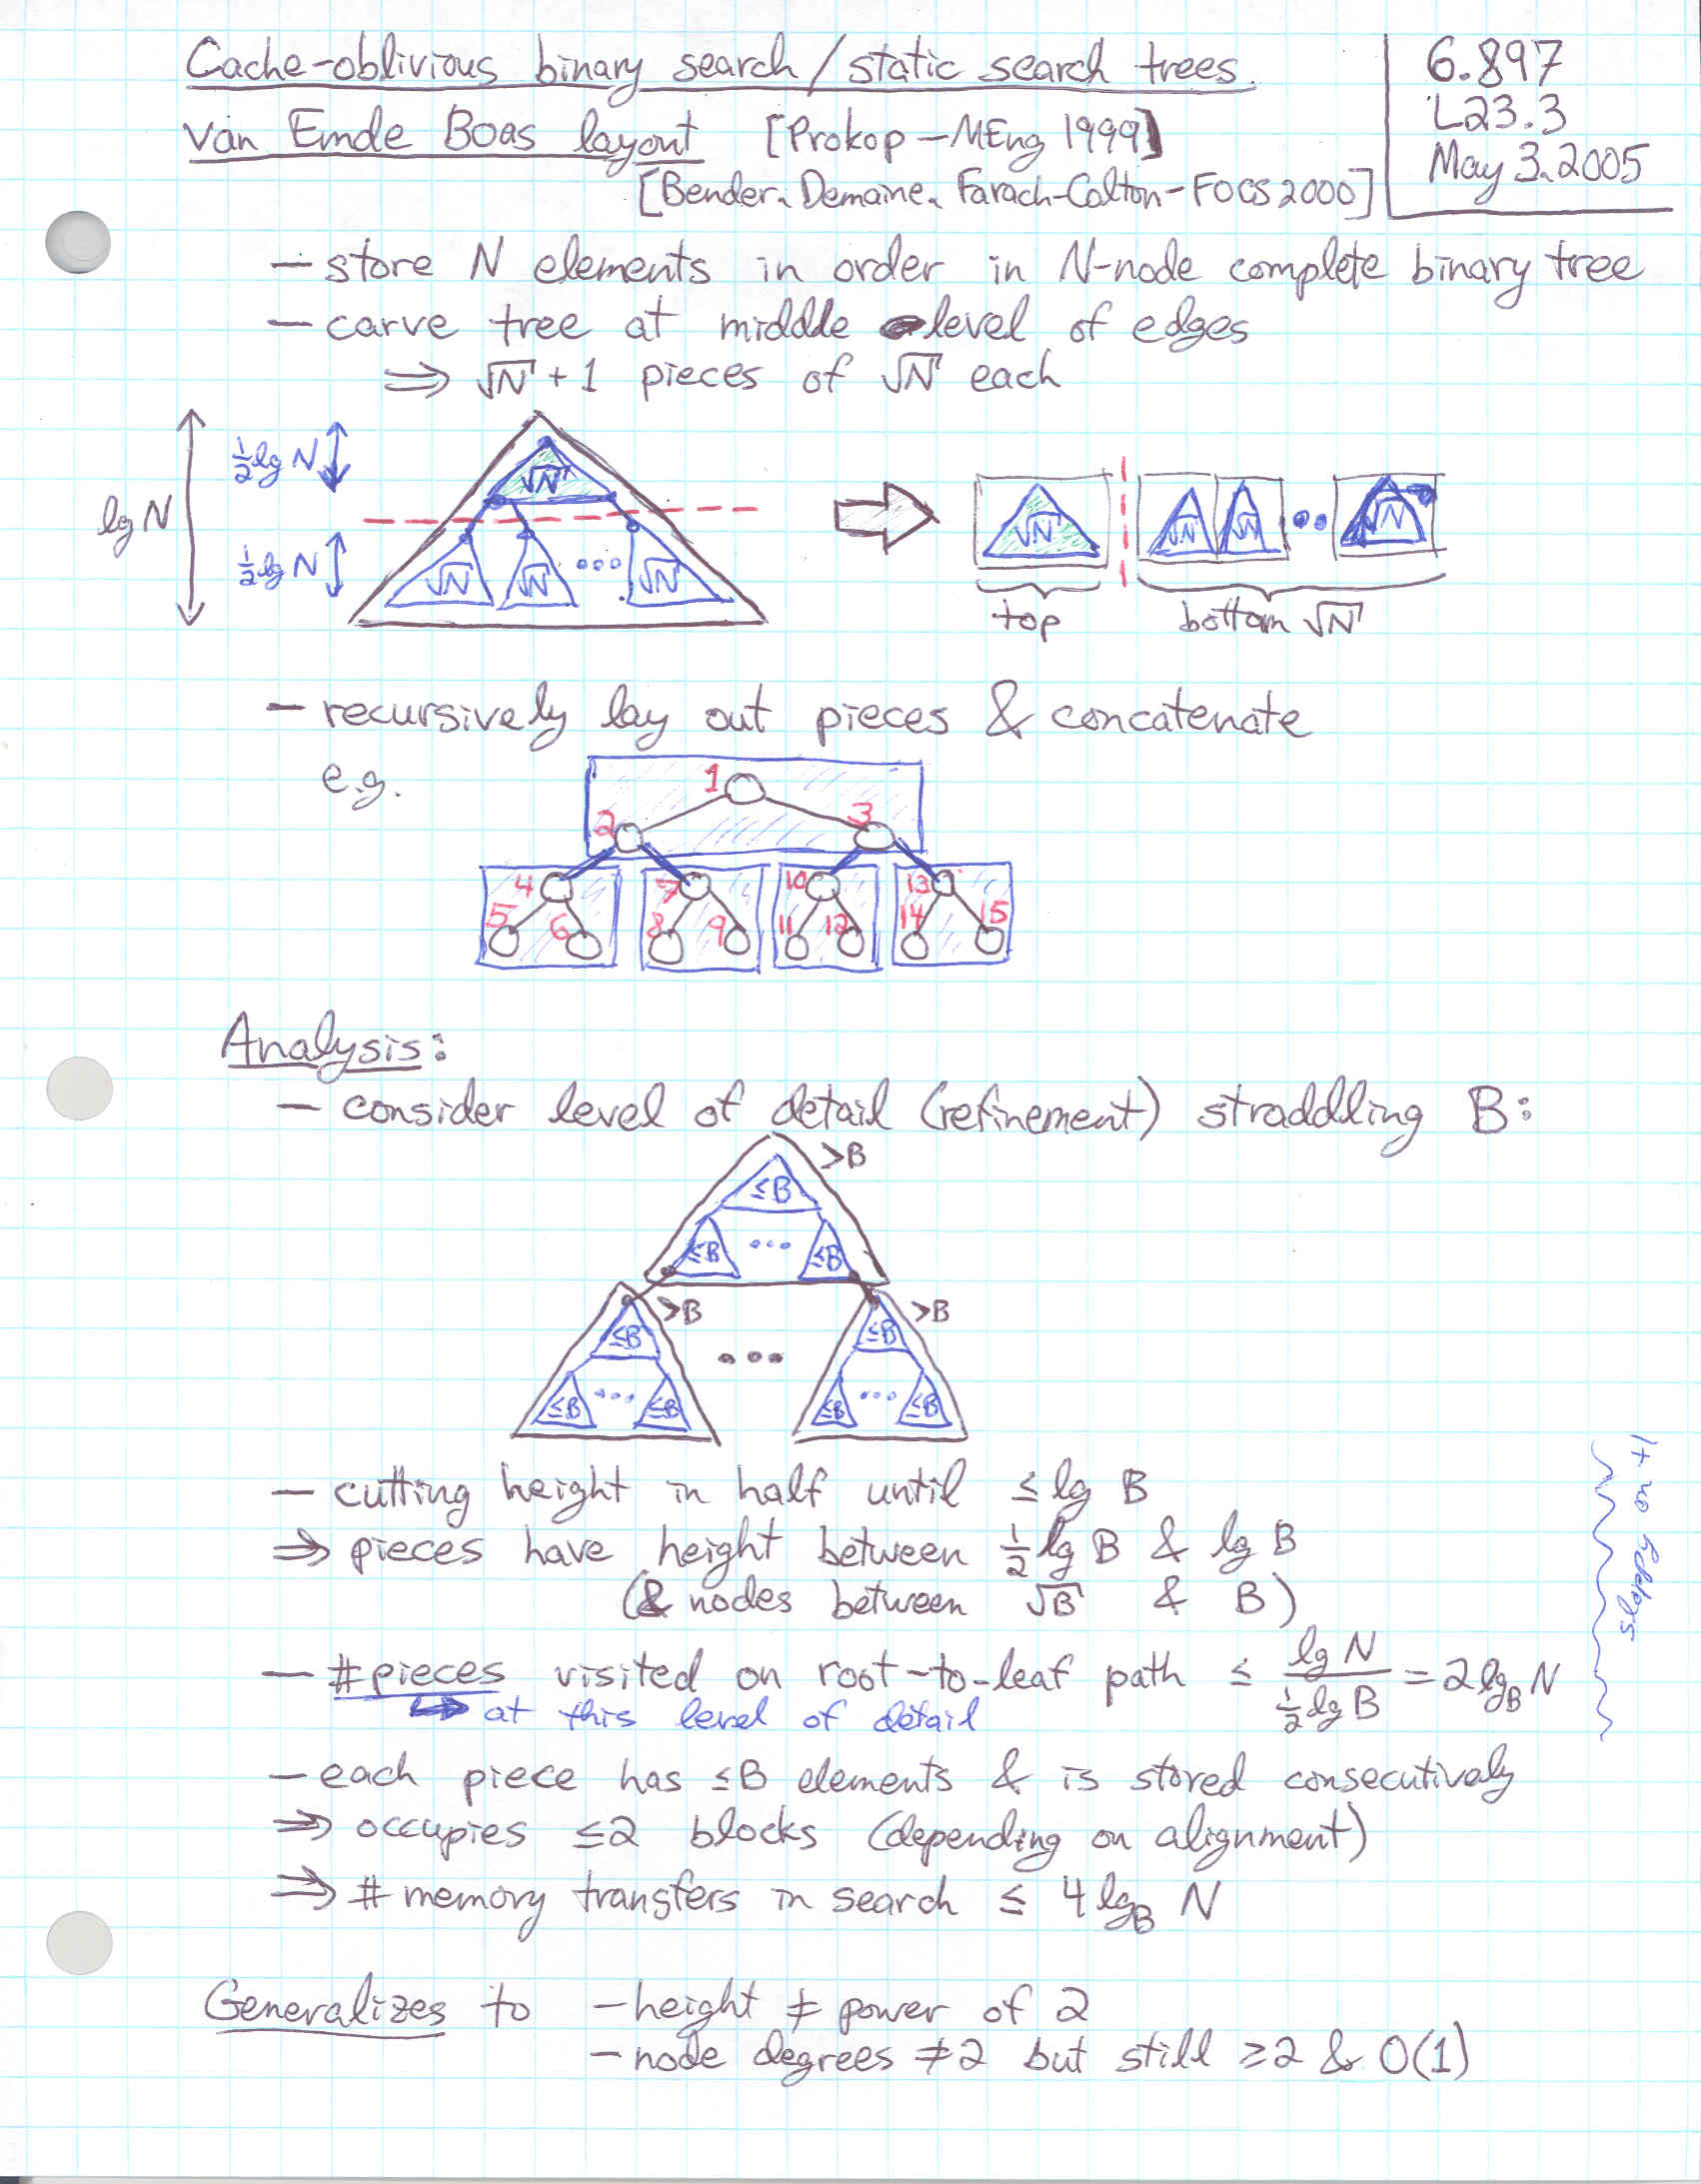 Cache-oblivious binary search/static search trees
van Emde Boas layout [Prokop—MEng 1999]
[Bender, Demaine, Farach-Colton—FOCS 2000]
6.897
L23.3
May 3, 2005
— store N elements in order in N-node complete binary tree
— carve tree at middle level of edges
⇒ √N + 1 pieces of √N each
lg N
½ lg N
½ lg N
√N
√N √N ... √N
√N √N √N ... √N
top bottom √N
— recursively lay out pieces & concatenate
e.g.
1
2 3
4 7 10 13
5 6 8 9 11 12 14 15
Analysis:
— consider level of detail (refinement) straddling B:
>B
≤B
≤B ... ≤B
>B >B
≤B ... ≤B
≤B ... ≤B ≤B ... ≤B
— cutting height in half until ≤ lg B
⇒ pieces have height between ½ lg B & lg B
(& nodes between √B & B)
sloppy on ±1
— # pieces visited on root-to-leaf path ≤ lg N / ½ lg B = 2 lg_B N
↳ at this level of detail
— each piece has ≤B elements & is stored consecutively
⇒ occupies ≤2 blocks (depending on alignment)
⇒ # memory transfers in search ≤ 4 lg_B N
Generalizes to — height ≠ power of 2
— node degrees ≠2 but still ≥2 & O(1)